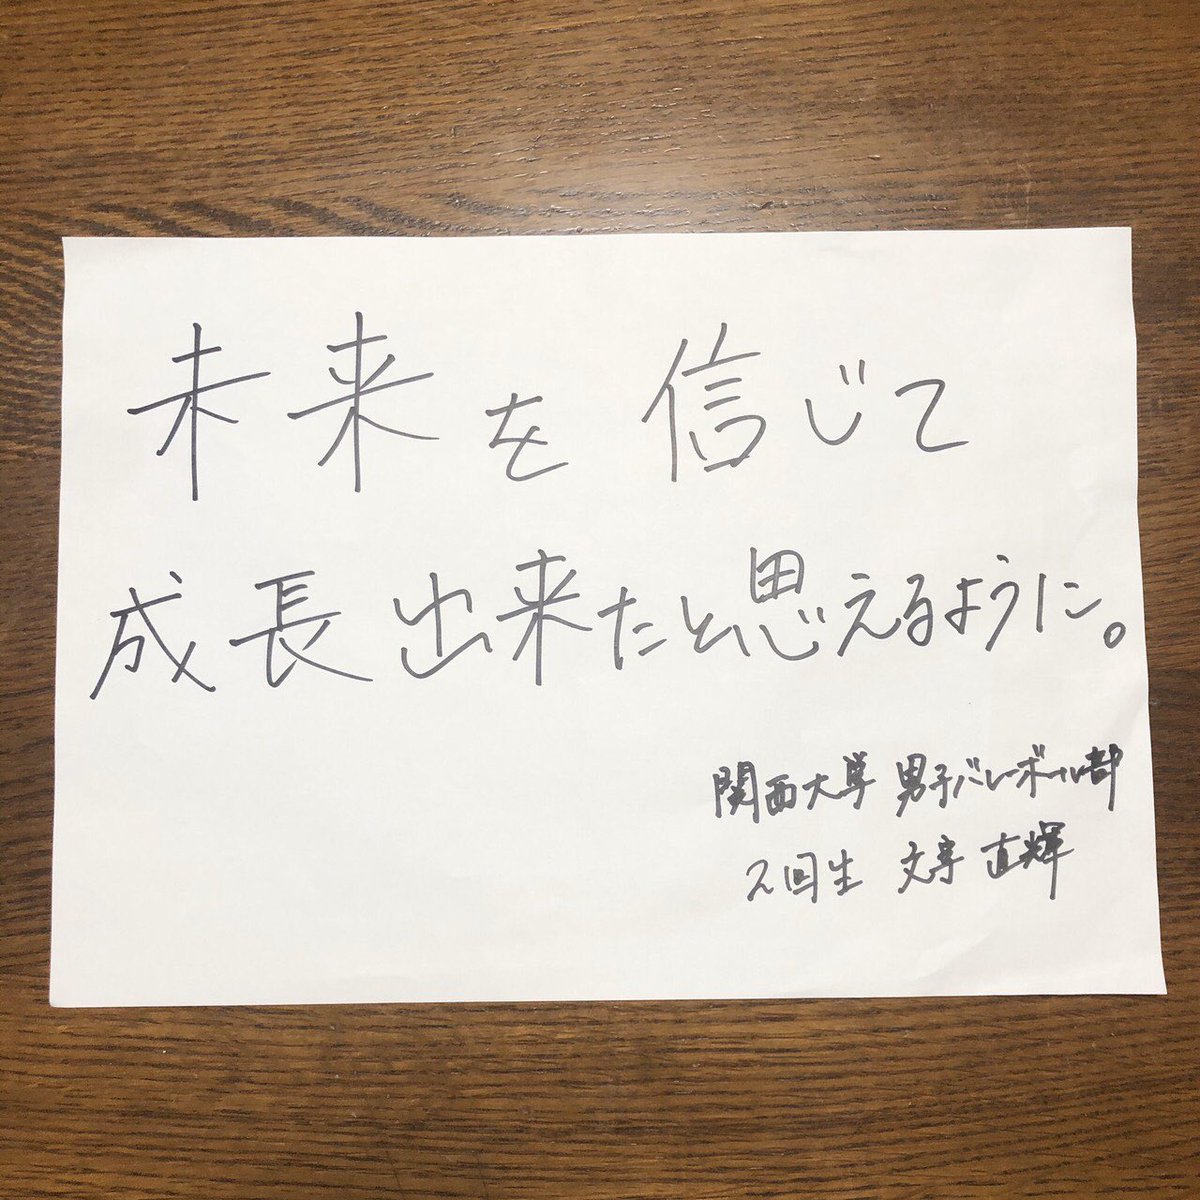 未来を 信じて
成長出来たと思えるように。
関西大学 男子バレーボール部
2回生 文字 直輝